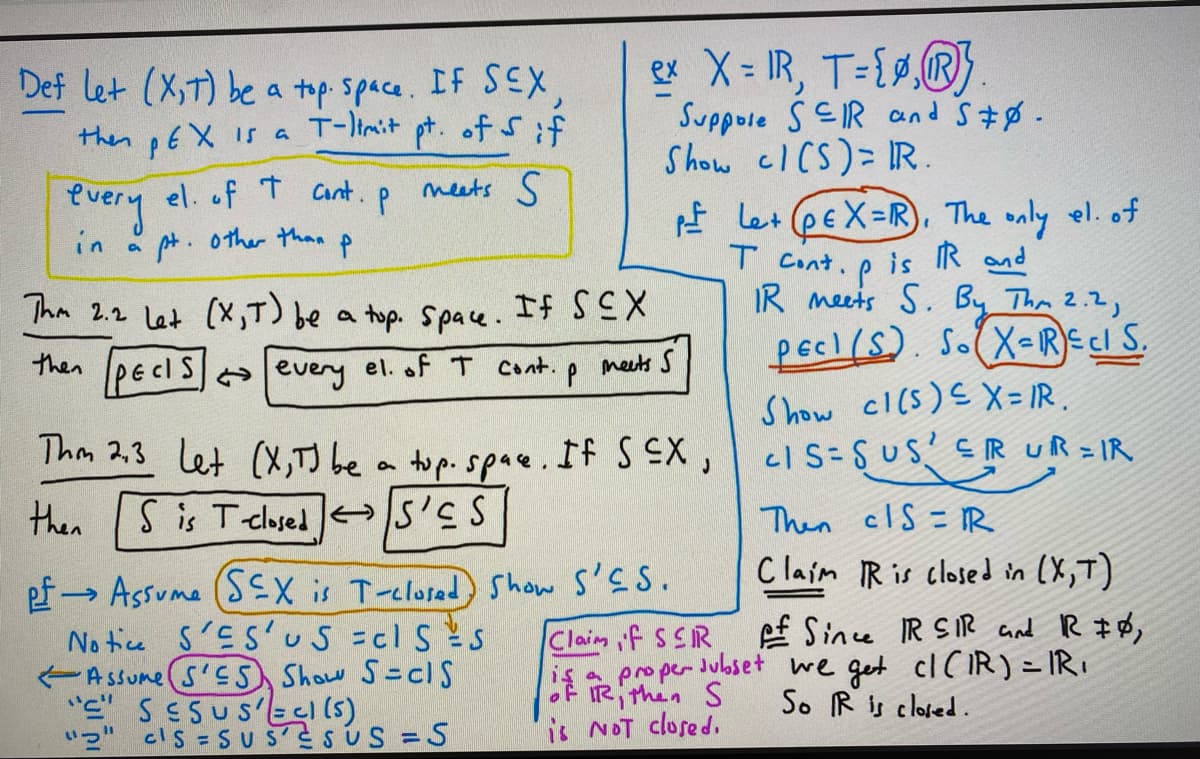 Def Let (X,T) be a top. space. If S⊆X,
then p∈X is a T-limit pt. of S if
every el. of T cont. p meets S
in a pt. other than p
Thm 2.2 Let (X,T) be a top. space. If S⊆X
then p∈cl S ↔ every el. of T cont. p meets S
Thm 2.3 Let (X,T) be a top. space. If S⊆X,
then S is T-closed ↔ S'⊆S
pf → Assume S⊆X is T-closed Show S'⊆S.
Notice S'⊆S'∪S = cl S = S
← Assume S'⊆S, Show S = cl S
"⊆" S⊆S∪S' = cl(S)
"⊇" cl S = S∪S'⊆S∪S = S
ex X = ℝ, T={ø,ℝ}.
Suppose S⊆ℝ and S≠ø.
Show cl(S) = ℝ.
pf Let p∈X=ℝ. The only el. of
T cont. p is ℝ and
ℝ meets S. By Thm 2.2,
p∈cl(S). So X=ℝ⊆cl S.
Show cl(S)⊆X=ℝ.
cl S = S∪S' ⊆ ℝ∪ℝ = ℝ
Then cl S = ℝ
Claim ℝ is closed in (X,T)
pf Since ℝ⊆ℝ and ℝ≠ø,
we get cl(ℝ) = ℝ.
So ℝ is closed.
Claim if S⊆ℝ
is a proper subset
of ℝ, then S
is NOT closed.